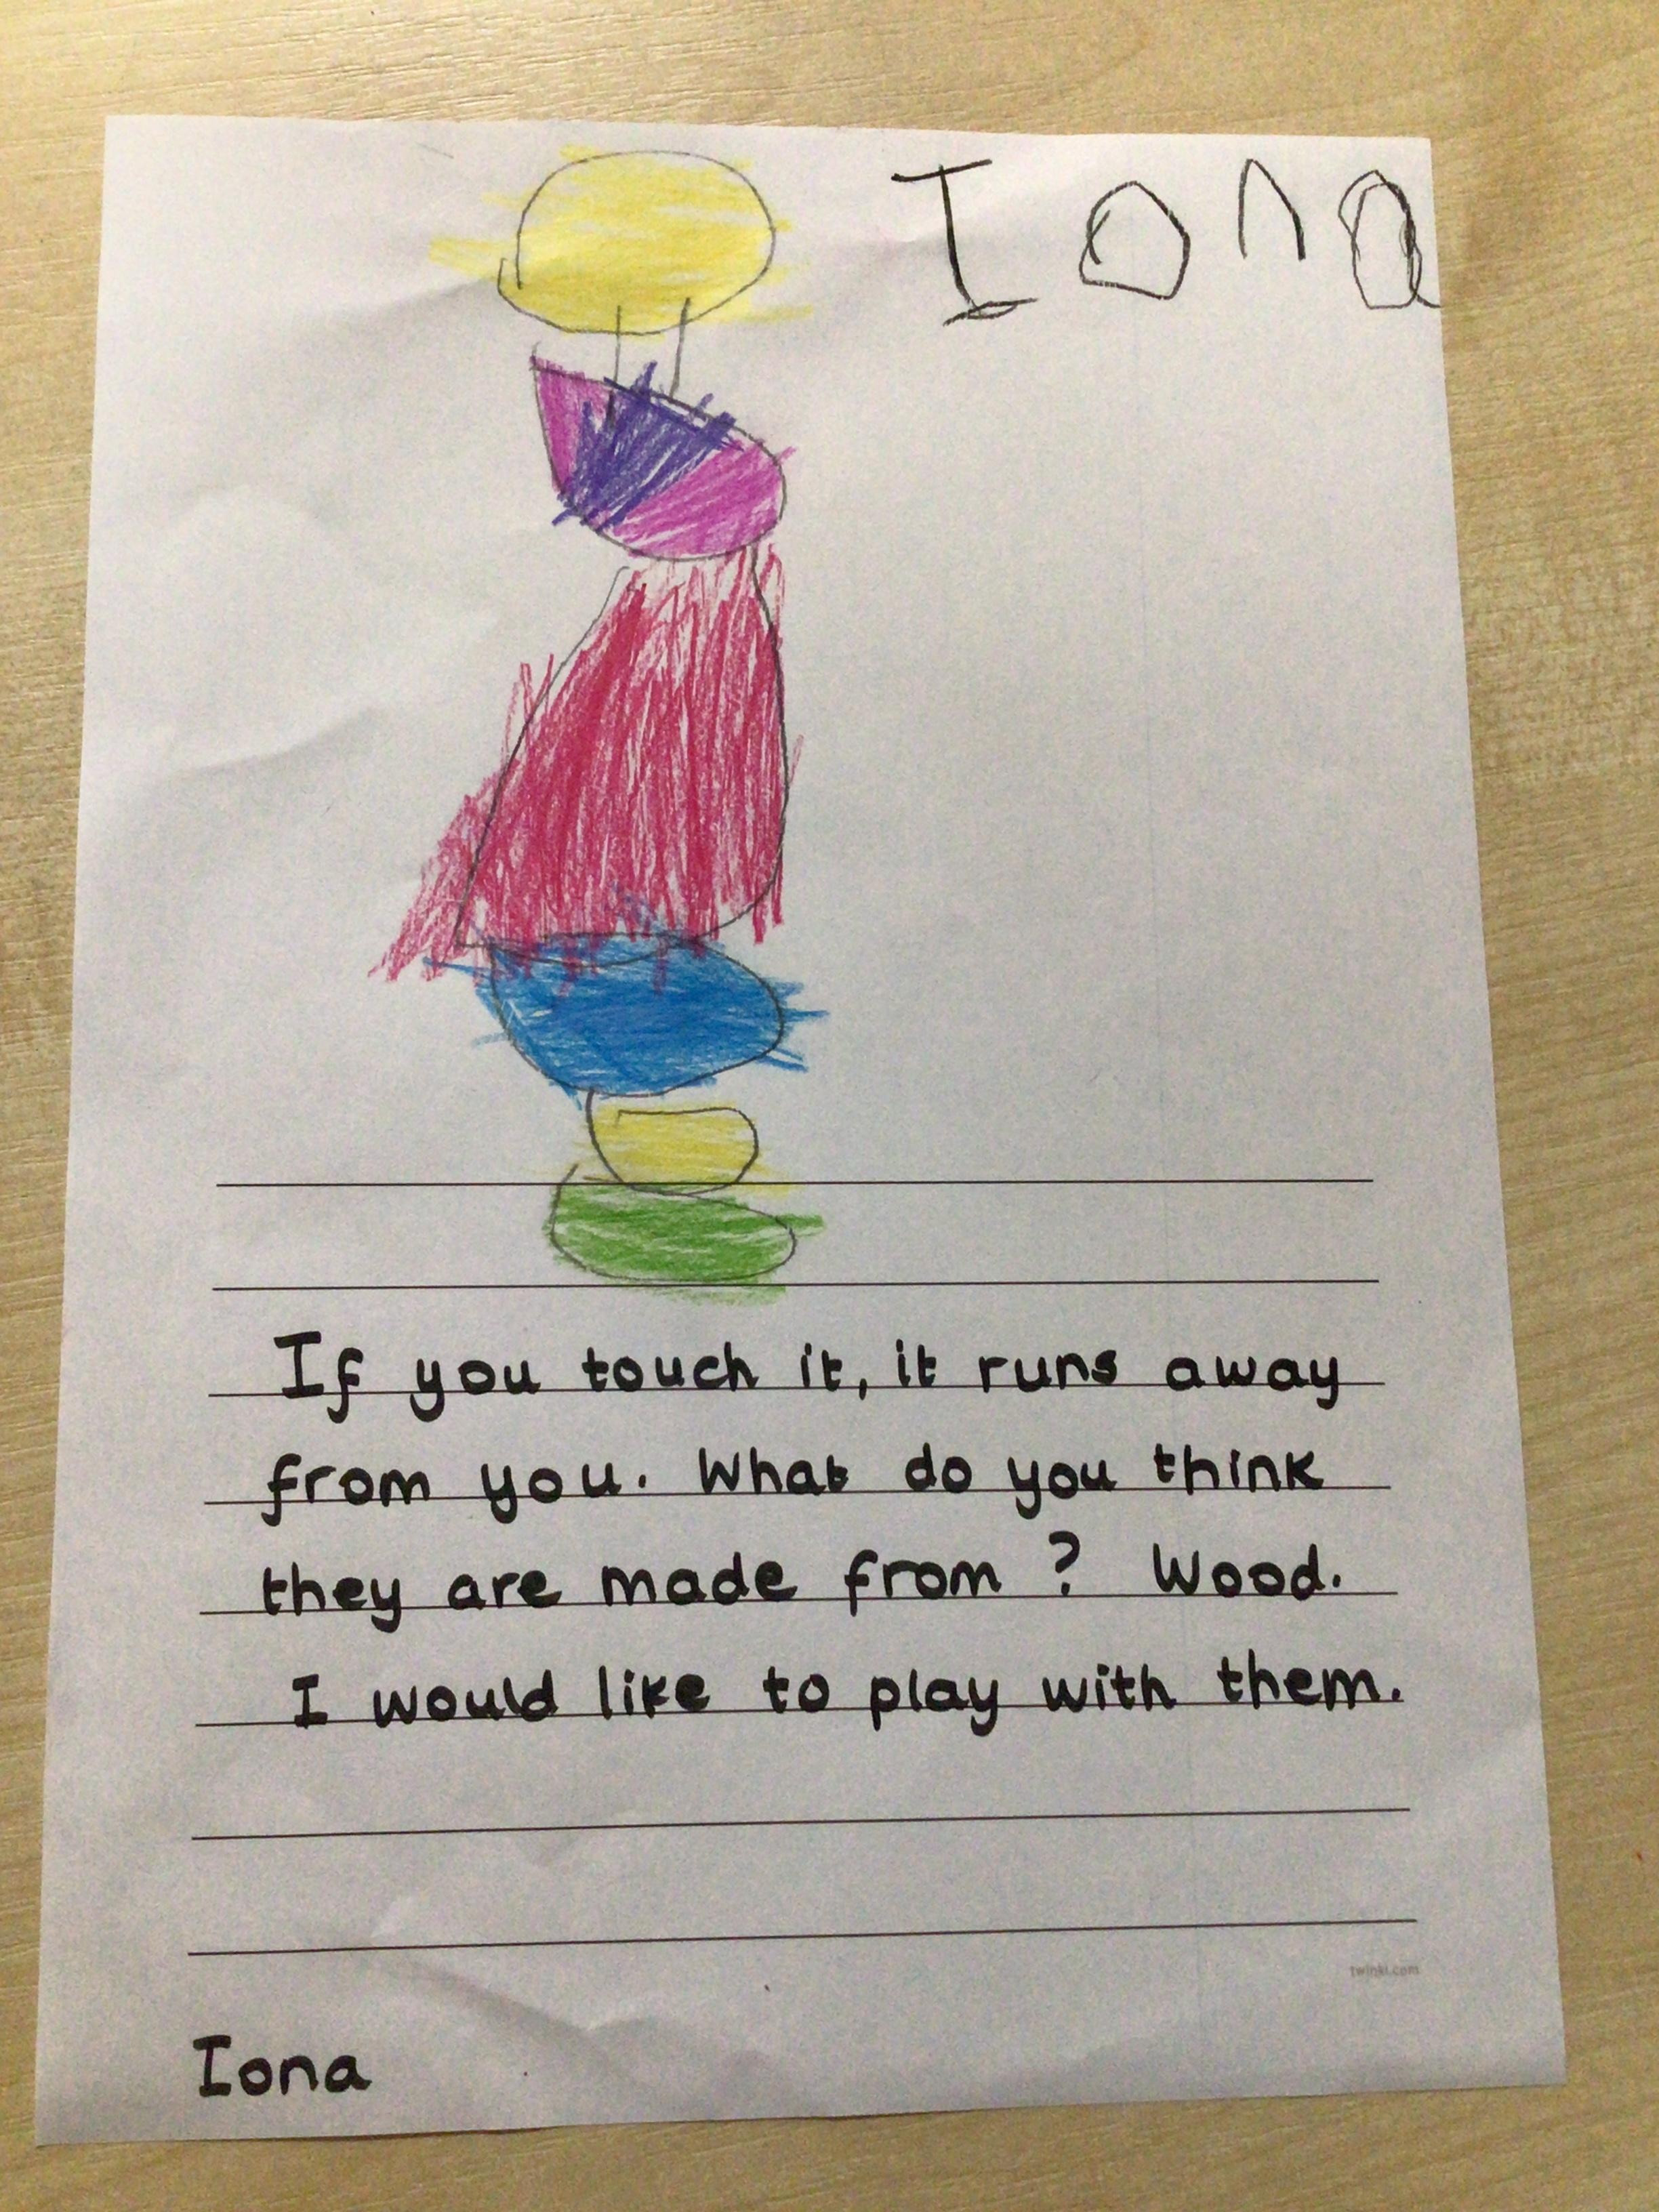 Iona
If you touch it, it runs away
from you. What do you think
they are made from? Wood.
I would like to play with them.
twinkl.com
Iona